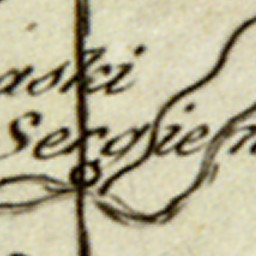 aski
Sergien